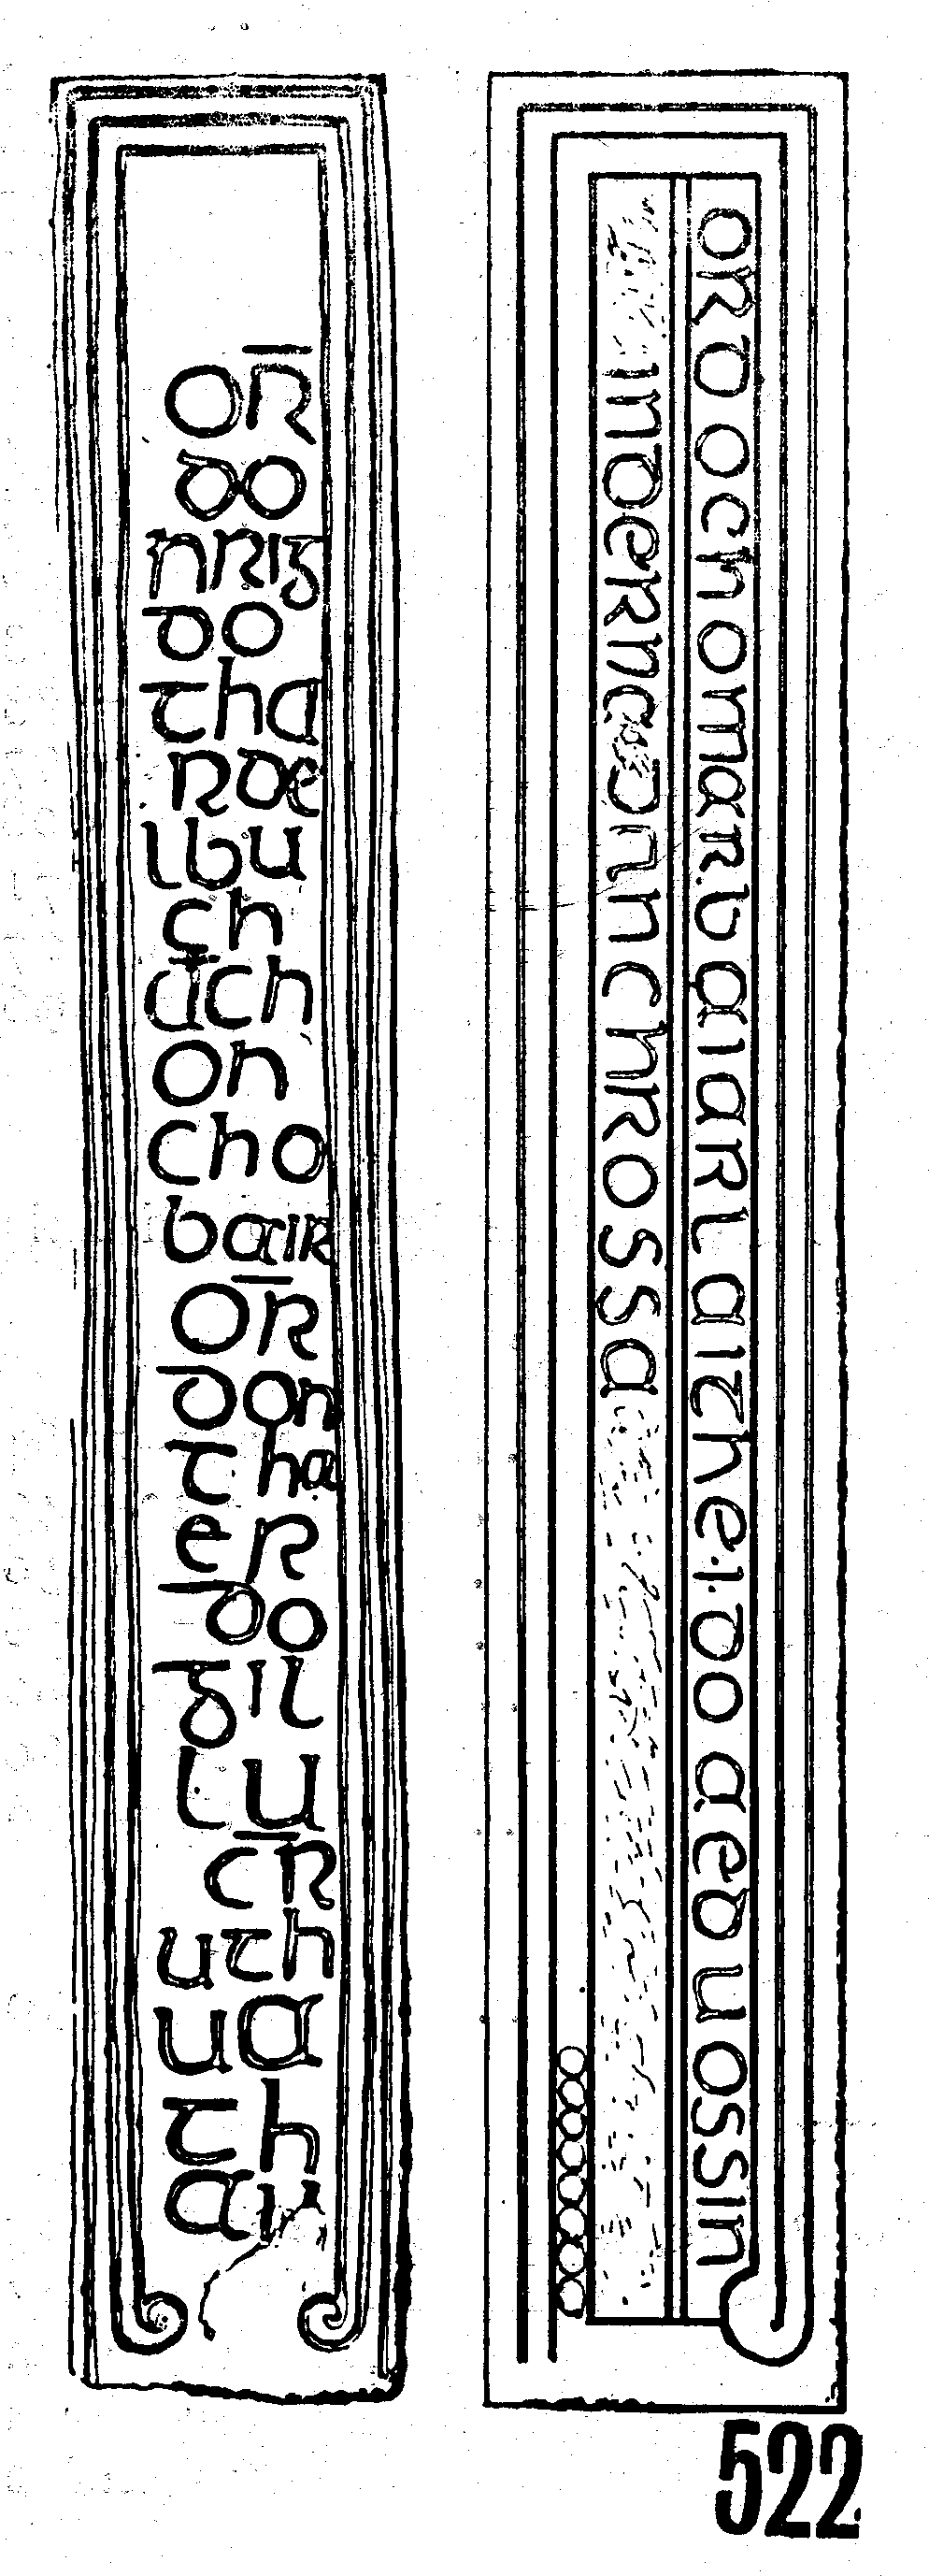 or̄
do
nrig
do
tha
rde
lbu
ch
uch
on
cho
bair
or̄
don
tha
er
do
gil
lu
cr̄
uth
ua
th
ai
or do chomarba iarlaithe.i.do aed u ossin
in dernad in chrossa
522